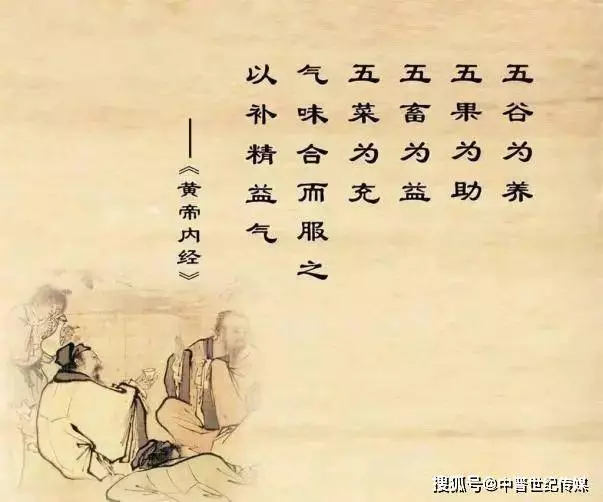 五谷为养
五果为助
五畜为益
五菜为充
气味合而服之
以补精益气
——《黄帝内经》
搜狐号@中晋世纪传媒